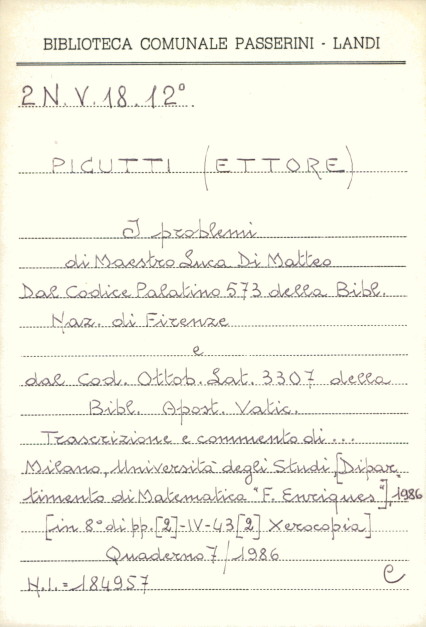 BIBLIOTECA COMUNALE PASSERINI - LANDI
2 N. V. 18. 12°.
PICUTTI (ETTORE)
I problemi
di Maestro Luca Di Matteo
Dal Codice Palatino 573 della Bibl.
Naz. di Firenze
e
dal Cod. Ottob. Lat. 3307 della
Bibl. Apost. Vatic.
Trascrizione e commento di...
Milano, Università degli Studi, [Dipar
timento di Matematica "F. Enriques"], 1986
[in 8° di pp. [2]-IV-43 [2] Xerocopia]
Quaderno 7/1986
N.I. = 184957
C